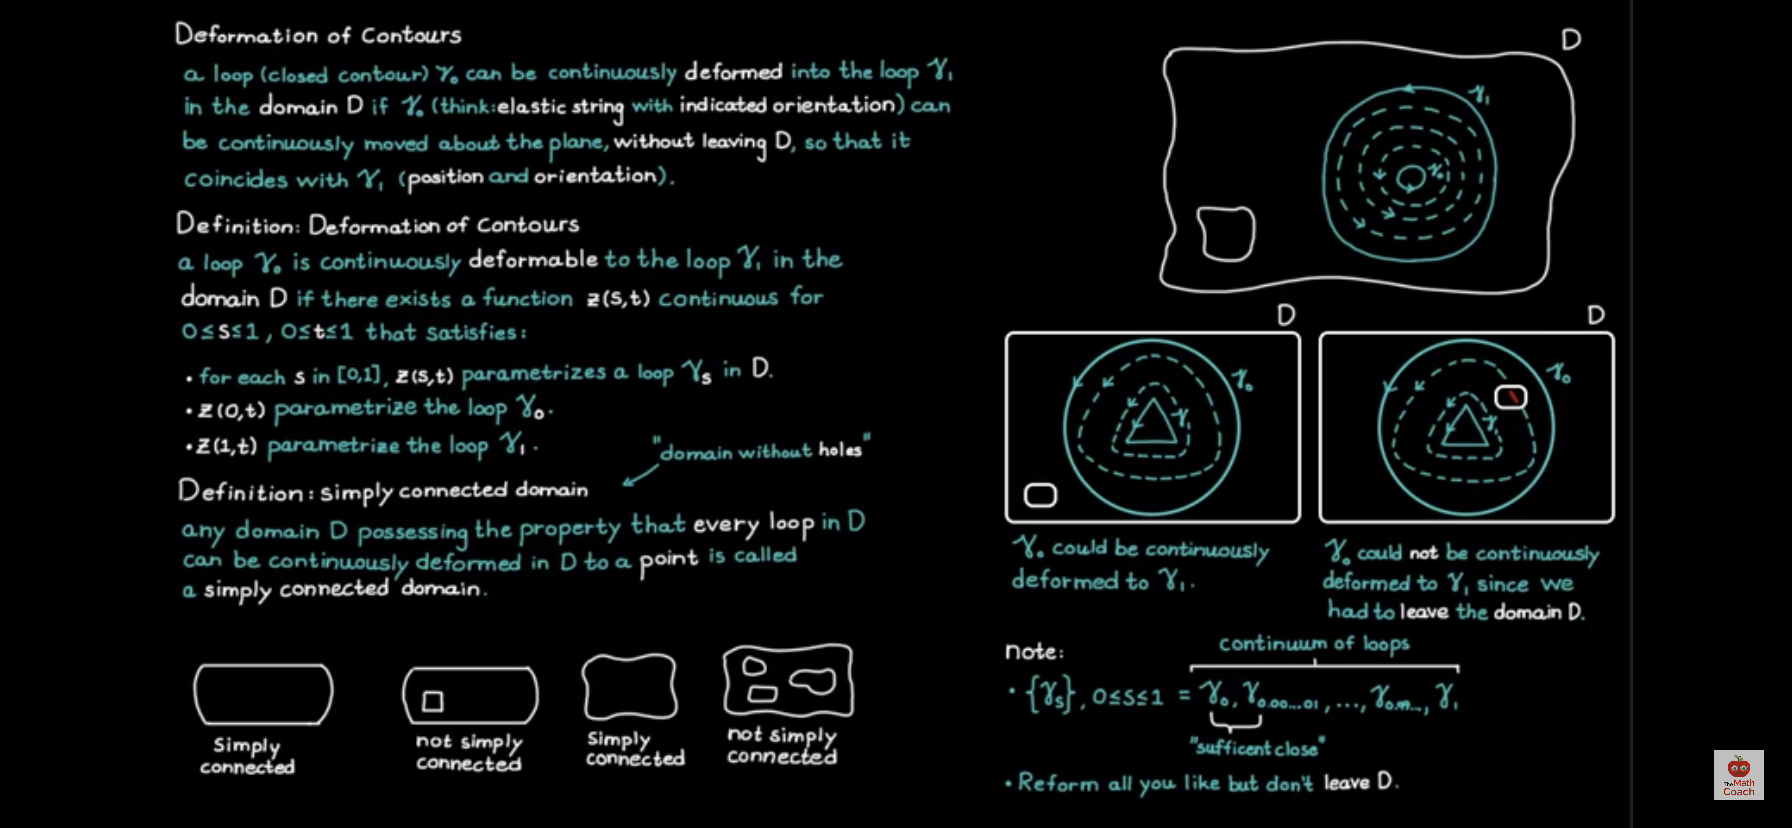 Deformation of Contours
a loop (closed contour) γ₀ can be continuously deformed into the loop γ₁
in the domain D if γ₀ (think: elastic string with indicated orientation) can
be continuously moved about the plane, without leaving D, so that it
coincides with γ₁ (position and orientation).
Definition: Deformation of Contours
a loop γ₀ is continuously deformable to the loop γ₁ in the
domain D if there exists a function z(s,t) continuous for
0≤s≤1, 0≤t≤1 that satisfies:
• for each s in [0,1], z(s,t) parametrizes a loop γₛ in D.
• z(0,t) parametrize the loop γ₀.
• z(1,t) parametrize the loop γ₁.
"domain without holes"
Definition: simply connected domain
any domain D possessing the property that every loop in D
can be continuously deformed in D to a point is called
a simply connected domain.
Simply
connected
not simply
connected
Simply
connected
not simply
connected
D
γ₁
γ₀
D
γ₀
γ₁
D
γ₀
γ₁
γ₀ could be continuously
deformed to γ₁.
γ₀ could not be continuously
deformed to γ₁ since we
had to leave the domain D.
note:
continuum of loops
• {γₛ}, 0≤s≤1 = γ₀, γ₀.₀₀...₀₁, ..., γ₁
"sufficent close"
• Reform all you like but don't leave D.
The Math
Coach